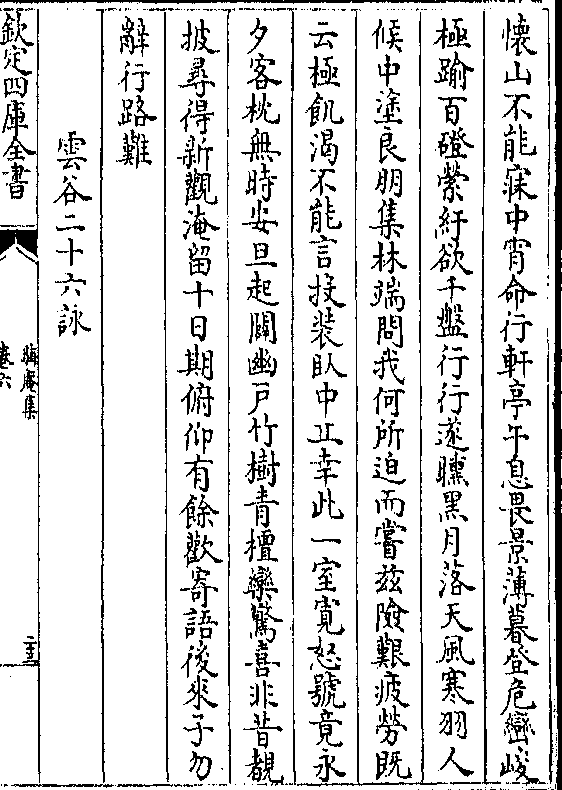 懷山不能寐中宵命行軒亭午息畏景薄暮登危巒峻
極踰百磴縈紆欲千盤行行遂曛黑月落天風寒羽人
候中塗良朋集林端問我何所迫而嘗兹險艱疲勞既
云極飢渴不能言投裝臥中丘幸此一室寛怒號竟永
夕客枕無時安旦起闢幽户竹樹青檀欒驚喜非昔覩
披尋得新觀淹留十日期俯仰有餘歡寄語後來子勿
辭行路難
雲谷二十六詠
欽定四庫全書
晦庵集
卷六